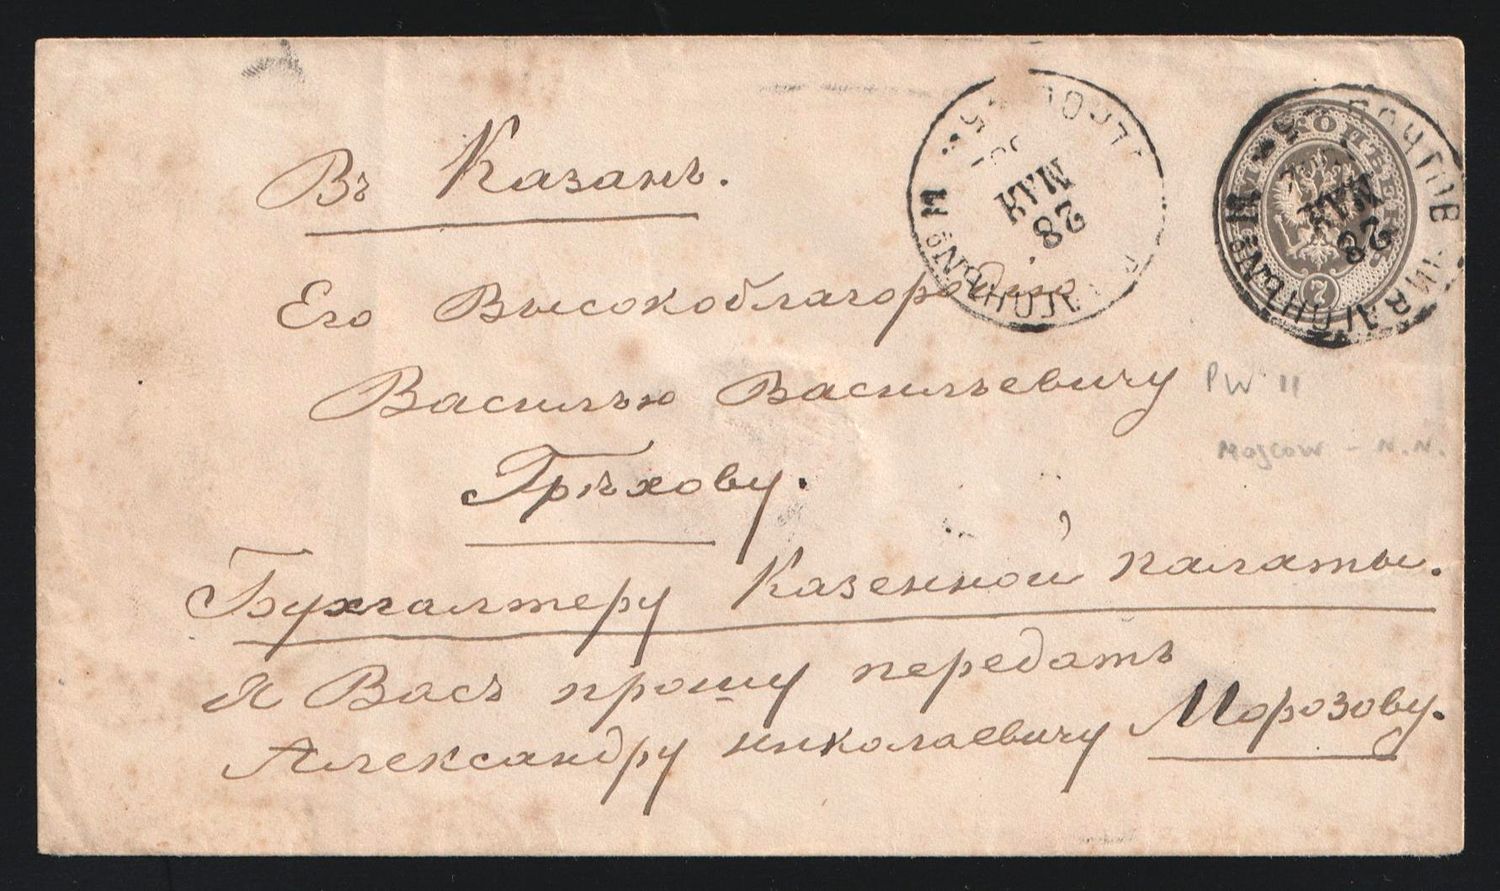 Въ Казань.
Его Высокоблагородію
Василью Васильевичу
Грѣхову.
Бухгалтеру Казенной палаты.
Я Васъ прошу передать
Александру николаевичу Морозову.
28
МАЯ
28
МАЯ
7
PW 11
Moscow - N.N.